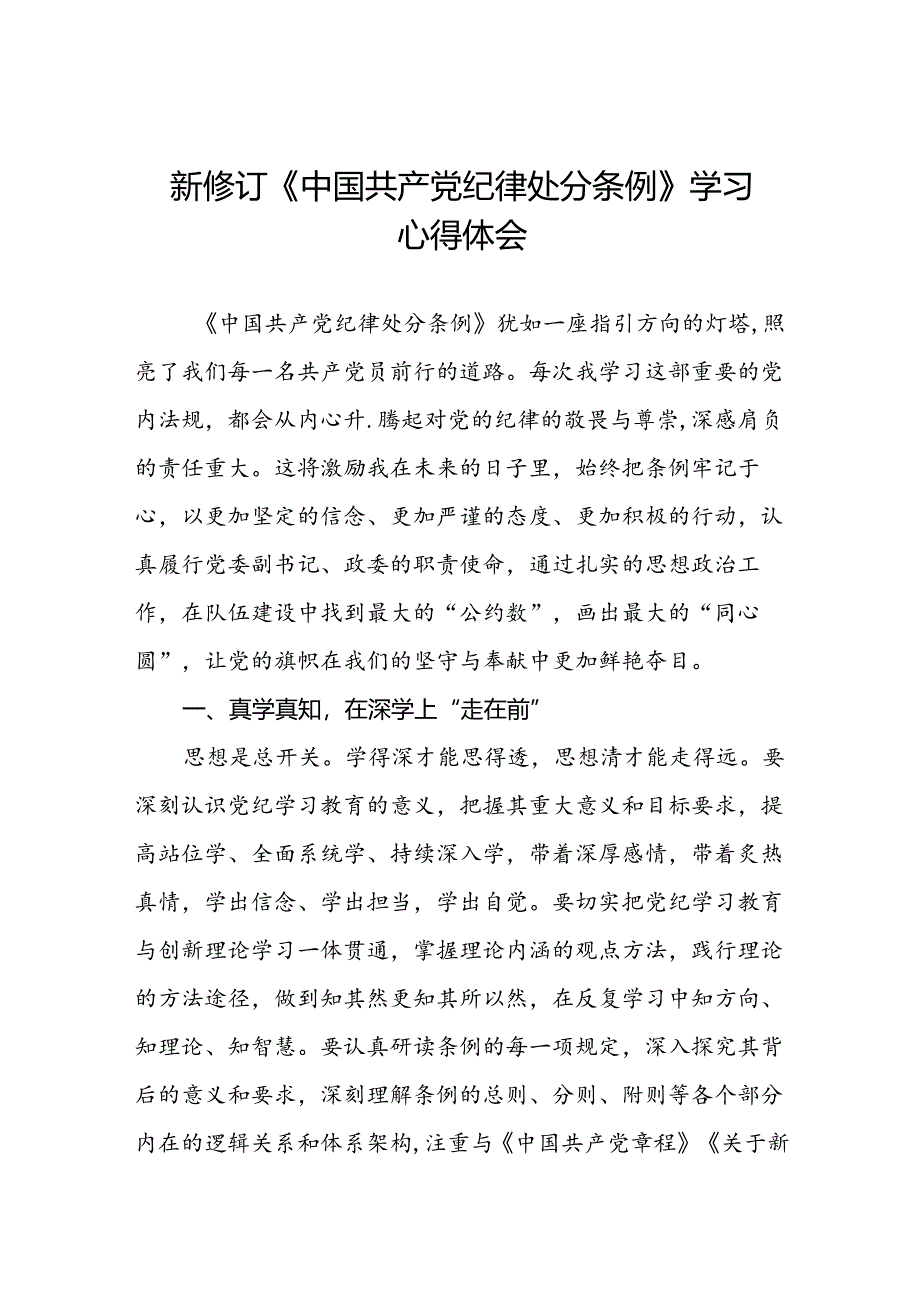 新修订《中国共产党纪律处分条例》学习
心得体会
《中国共产党纪律处分条例》犹如一座指引方向的灯塔,照
亮了我们每一名共产党员前行的道路。每次我学习这部重要的党
内法规，都会从内心升.腾起对党的纪律的敬畏与尊崇,深感肩负
的责任重大。这将激励我在未来的日子里，始终把条例牢记于
心，以更加坚定的信念、更加严谨的态度、更加积极的行动，认
真履行党委副书记、政委的职责使命，通过扎实的思想政治工
作，在队伍建设中找到最大的“公约数”，画出最大的“同心
圆”，让党的旗帜在我们的坚守与奉献中更加鲜艳夺目。
一、真学真知，在深学上“走在前”
思想是总开关。学得深才能思得透，思想清才能走得远。要
深刻认识党纪学习教育的意义，把握其重大意义和目标要求，提
高站位学、全面系统学、持续深入学，带着深厚感情，带着炙热
真情，学出信念、学出担当，学出自觉。要切实把党纪学习教育
与创新理论学习一体贯通，掌握理论内涵的观点方法，践行理论
的方法途径，做到知其然更知其所以然，在反复学习中知方向、
知理论、知智慧。要认真研读条例的每一项规定，深入探究其背
后的意义和要求，深刻理解条例的总则、分则、附则等各个部分
内在的逻辑关系和体系架构,注重与《中国共产党章程》《关于新